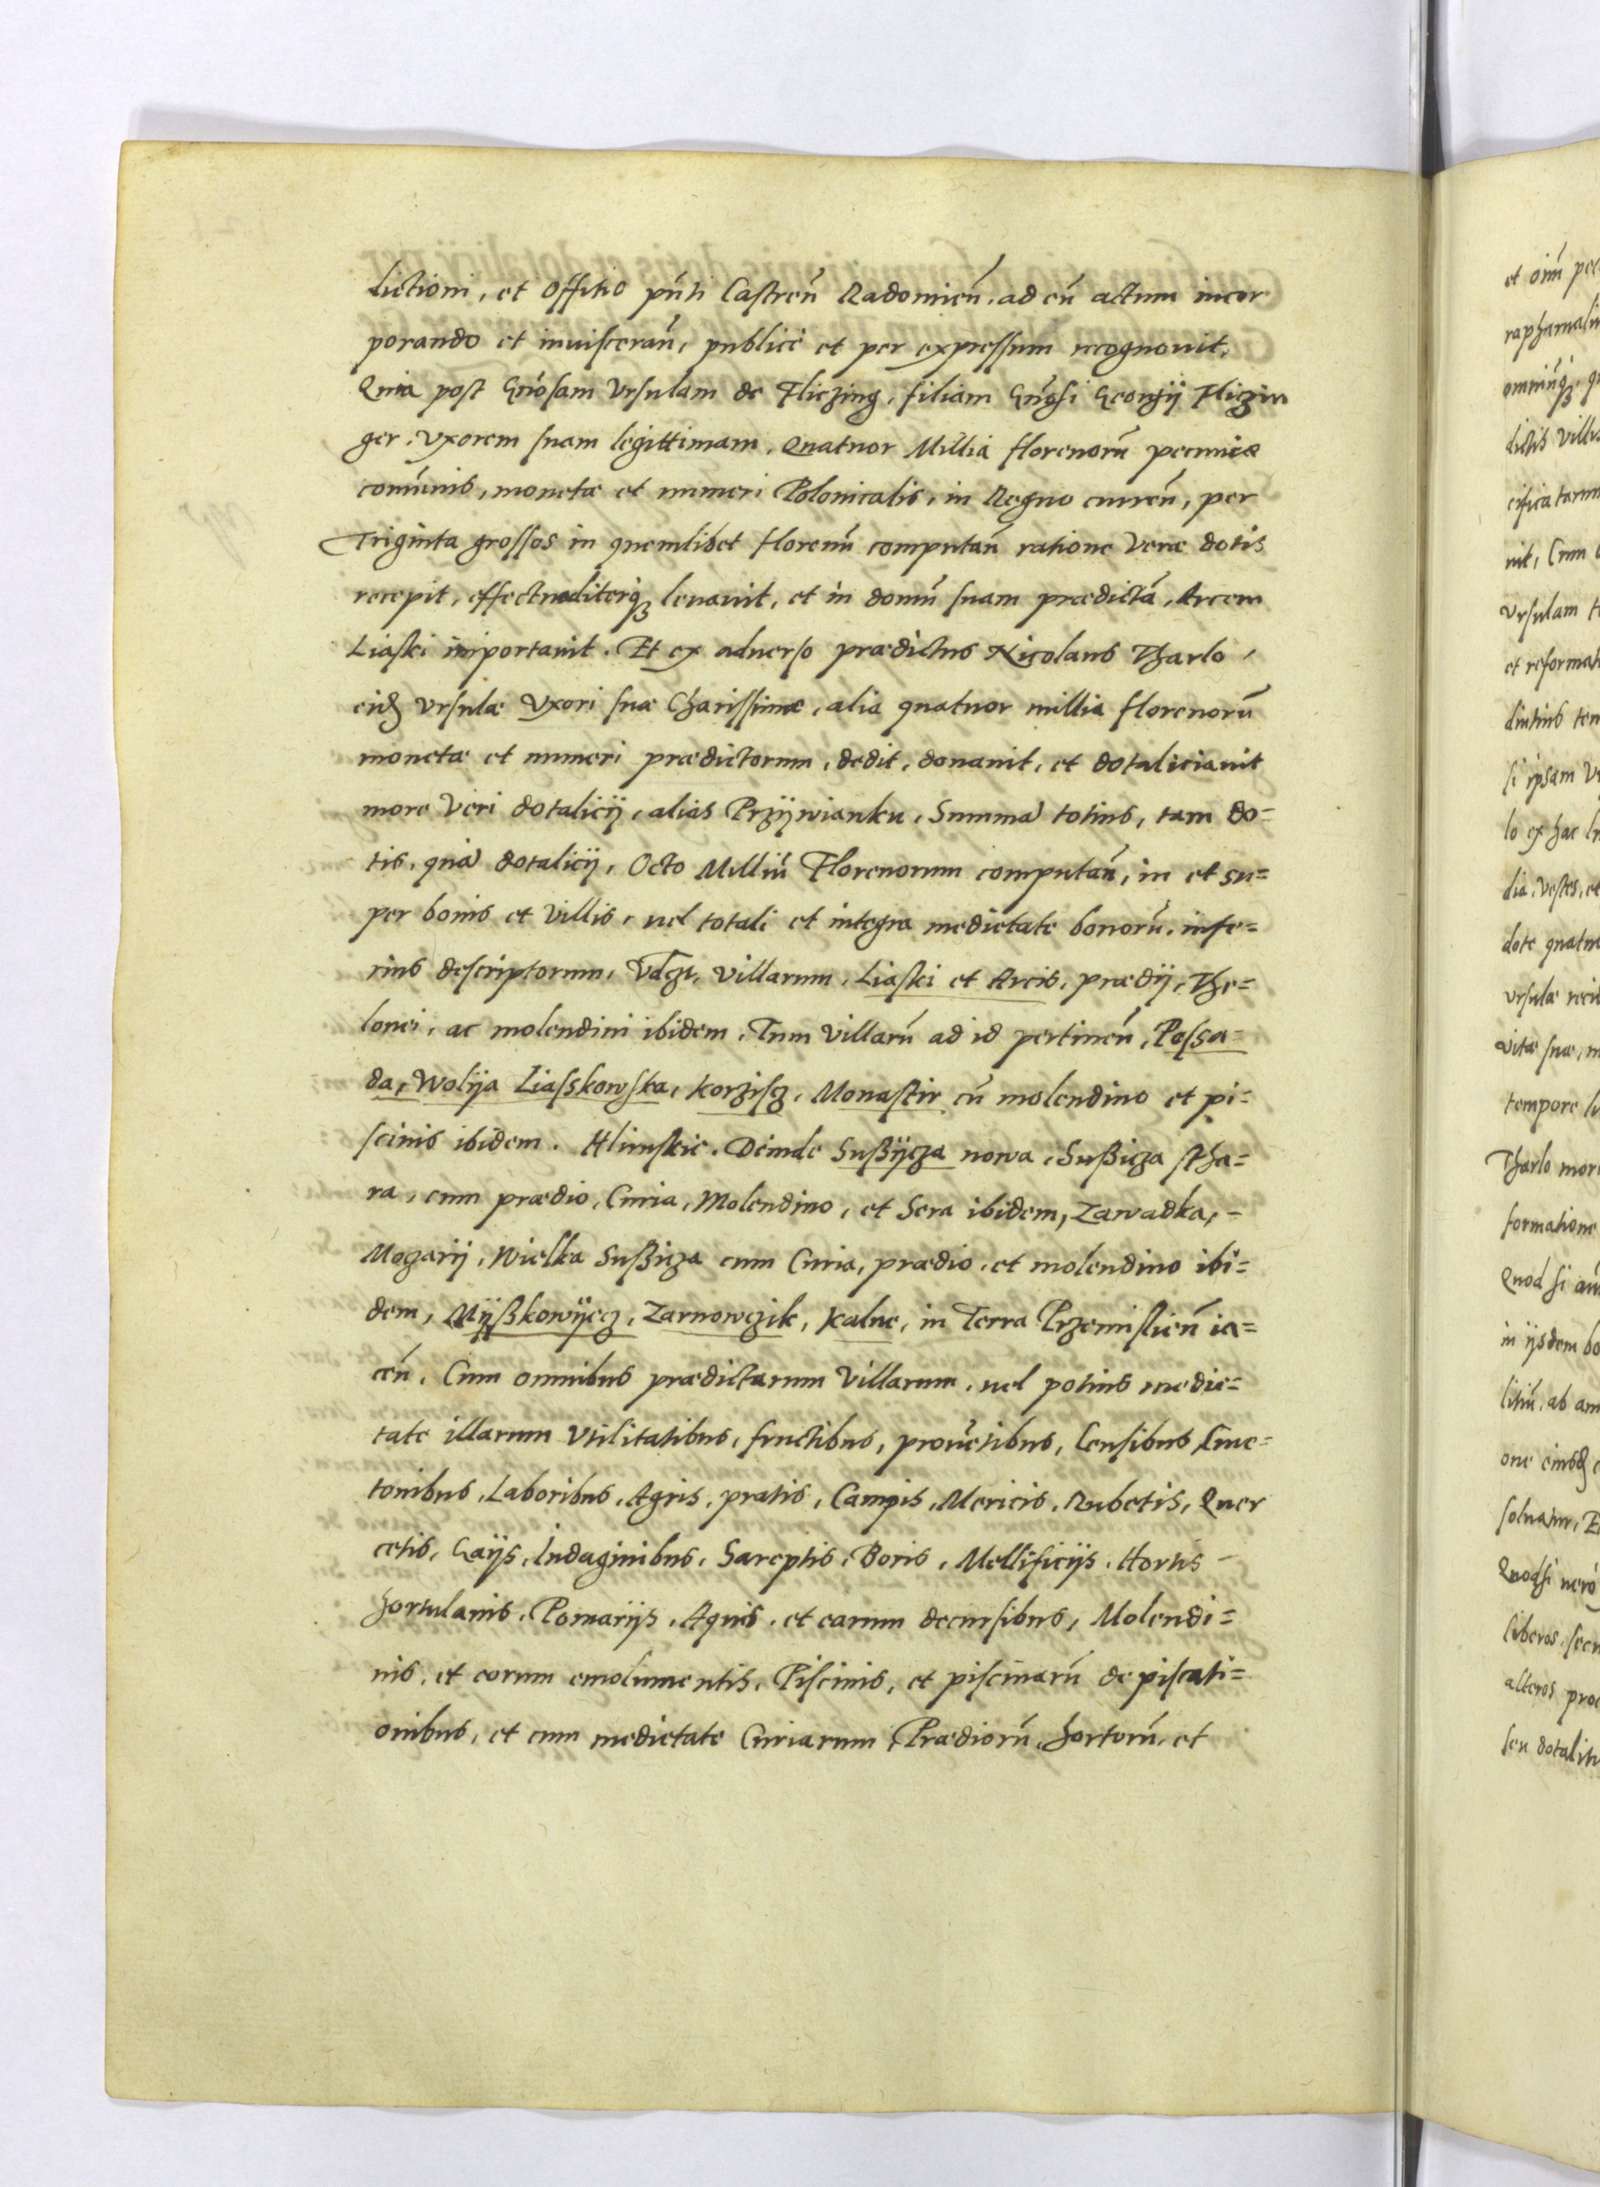 dictioni, et Offitio pn̄ti Castreñ Radomieñ. ad eū actum incor
porando et inuisceran̄, publicè et per expressum recognouit,
Quia post Gn̄osam Vrsulam de Fliczing, filiam Gn̄osi Georgÿ Fliczin
ger. Vxorem suam legittimam, Quatuor Millia florenorū pecuniæ
com̄unis, monetæ et numeri Polonicalis, in Regno curreñ, per
Triginta grossos in quemlibet florenū computan̄ ratione Veræ dotis
recepit, effectualiterq₃ leuauit, et in domū suam prædictā, Arcem
Liaski importauit. Et ex aduerso prædictus Nicolaus Tharlo,
eidꝫ Vrsulæ Vxori suæ Charissimæ, alia quatuor millia florenorū
monetæ et numeri prædictorum, dedit, donauit, et dotaliciauit
more Veri dotalicÿ, alias Przÿwianku, Summā totius, tam do=
tis, quā dotalicÿ, Octo Milliū Florenorum computan̄, in et su=
per bonis et Villis, uel totali et integra medietate bonorū, infe=
rius descriptorum, Vdꝫt, villarum, Liaski et Arcis, prædÿ, The=
lonei, ac molendini ibidem, Tum Villarū ad id pertineñ, Possa=
da, Wolija Liasskowska, Korzisz, Monastir cū molendino et pi=
scinis ibidem. Hlinskie. Deinde Sußÿcza nowa, Sußicza stha=
ra, cum prædio, Curia, Molendino, et Sera ibidem, Zawadka,=
Mogarÿ, Wielka Sußicza cum Curia, prædio, et molendino ibi=
dem, Mÿßkowÿcz, Zarnowczik, Kalne, in Terra Przemislieñ ia=
ceñ. Cum omnibus prædictarum Villarum, uel potius medie=
tate illarum Vtilitatibus, fructibus, prouētibus, Censibus Cme=
tonibus, Laboribus, Agris, pratis, Campis, Mericis, Rubetis, Quer
cetis, Gaÿs, Indaginibus, Sareptis, Boris, Mellificÿs, Hortis
hortulanis, Pomarÿs, Aquis, et earum decursibus, Molendi=
nis, et eorum emolumentis, Piscinis, et piscinarū de piscati=
onibus, et cum medietate Curiarum, Prædiorū, hortorū, et
et oīm
raphamali
omniūq₃
dictis Villis
cificatarum
uit, Cum
Vrsulam
et reformat
diutius
si ipsam
lo ex hac
dia, Vestes, et
dote
Vrsulæ
Vitæ suæ,
tempore
Tharlo
formatione
Quod si
in ÿsdem
ab
one eiusdꝫ
soluatur,
Quodsi uerò
liberos,
alteros
seu